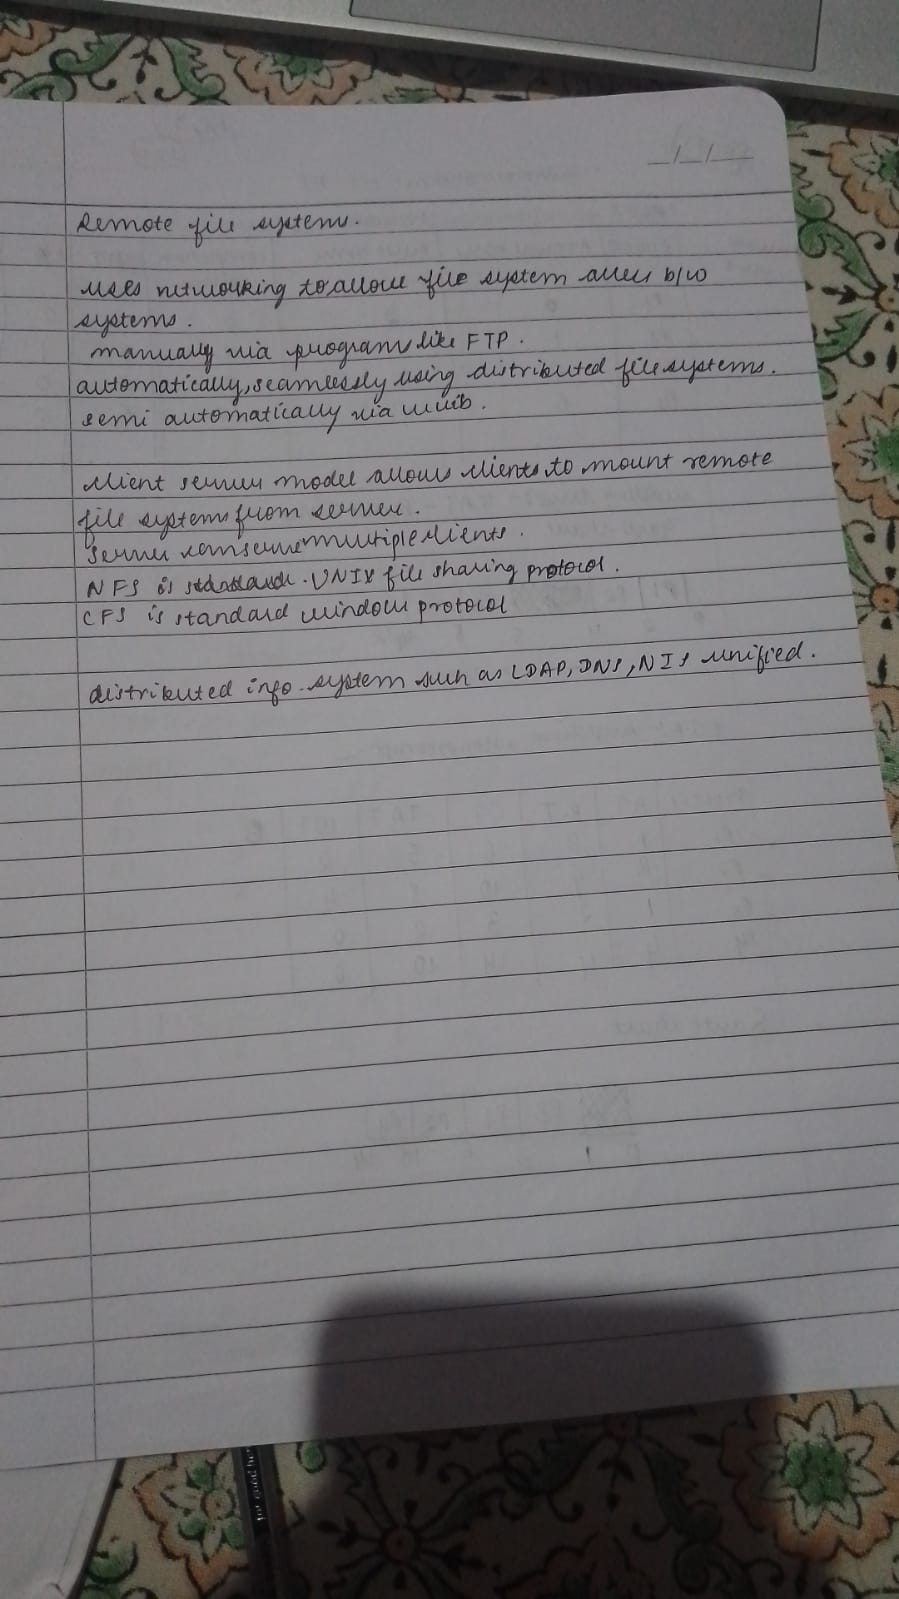 Remote file systems.
uses networking to allow file system access b/w
systems.
manually via programs like FTP.
automatically, seamlessly using distributed file systems.
semi automatically via
client server model allows clients to mount remote
file systems from server.
server can serve multiple clients.
NFS is standard. UNIX file sharing protocol.
CFS is standard window protocol
distributed info. system such as LDAP, DNS, NIS unified.